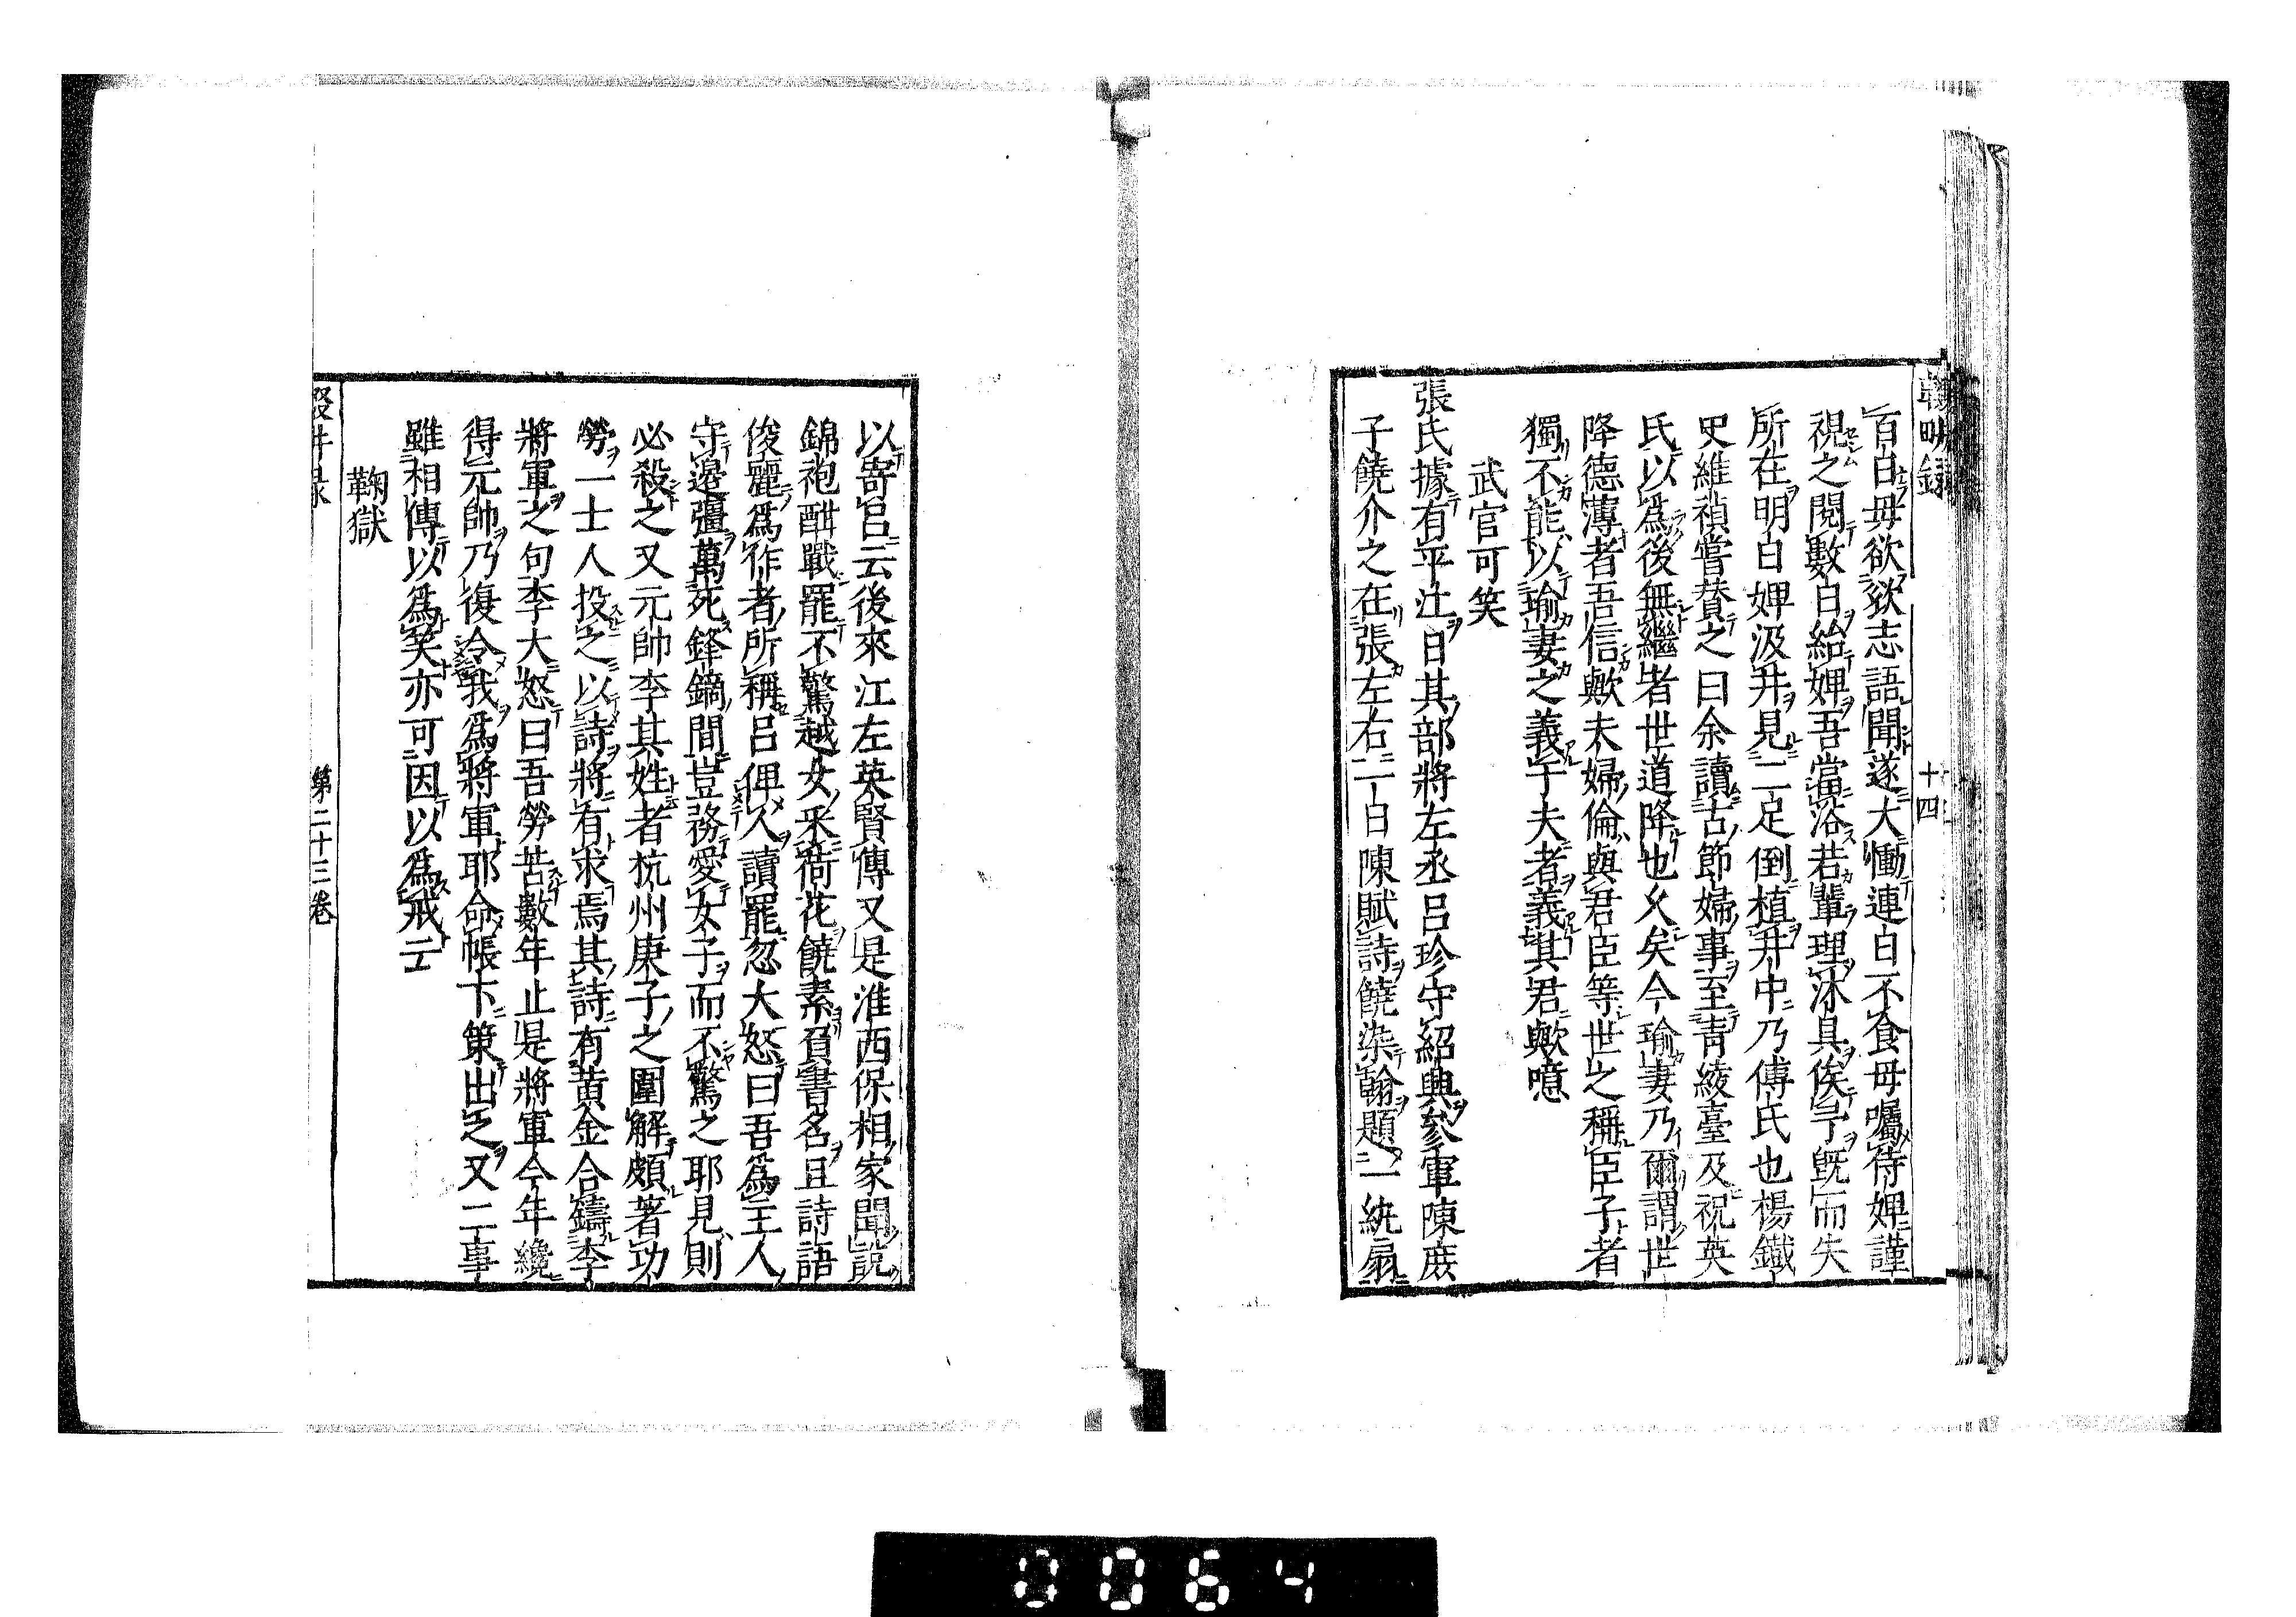 輟畊録 十四
百日毋欲奪志語聞遂大慟連日不食毋囑侍婢謹
視之閱數日紿婢吾當浴若輩理沐具俟予旣而失
所在明日婢汲井見二足倒植井中乃傅氏也楊鐵
史維禎嘗賛之曰余讀古節婦事至青綾臺及祝英
氏以爲後無繼者世道降也久矣今瑜妻乃爾謂世
降德薄者吾信歟夫婦倫與君臣等世之稱臣子者
獨不能以瑜妻之義于夫者義其君歟噫
武官可笑
張氏據有平江日其部將左丞呂珍守紹興參軍陳庶
子饒介之在張左右一日陳賦詩饒染翰題一紈扇
以寄呂云後來江左英賢傳又是淮西保相家聞説
錦袍酣戰罷不驚越女采荷花饒素負書名且詩語
俊麗爲作者所稱呂俾人讀罷忽大怒曰吾爲王人
守邊彊萬死鋒鏑間豈務愛女子而不驚之耶見則
必殺之又元帥李其姓者杭州庚子之圍解頗著功
勞一士人投之以詩將有求焉其詩有黄金合鑄李
將軍之句李大怒曰吾勞苦數年止是將軍今年纔
得元帥乃復令我爲將軍耶命帳下策出之又二事
雖相傳以爲笑亦可因以爲戒云
鞠獄
第二十三卷
0064